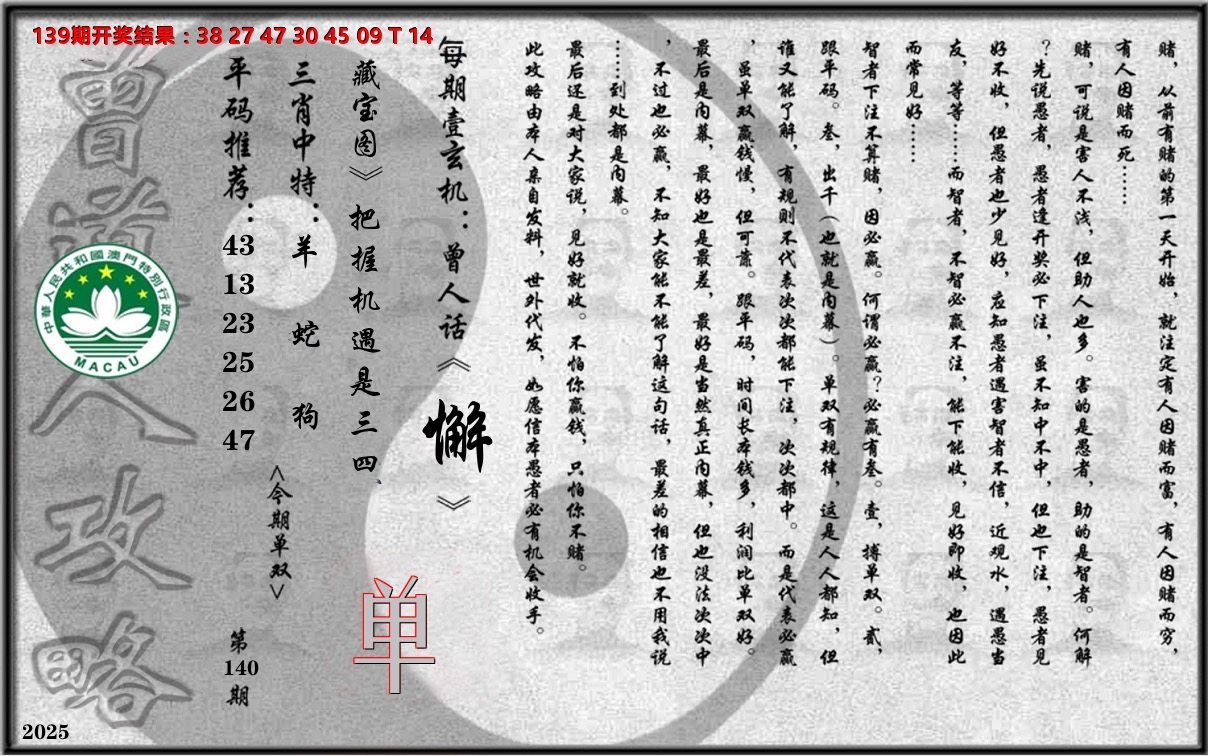 139期开奖结果：38 27 47 30 45 09 T 14
赌，从前有赌的第一天开始，就注定有人因赌而富，有人因赌而穷，
有人因赌而死……
赌，可说是害人不浅，但助人也多。害的是愚者，助的是智者。何解
？先说愚者，愚者逢开奖必下注，虽不知中不中，但也下注，愚者见
好不收，但愚者也少见好，应知愚者遇害智者不信，近观水，遇愚当
友，等等……而智者，不智必赢不注，能下能收，见好即收，也因此
而常见好……
智者下注不算赌，因必赢。何谓必赢？必赢有叁。壹，搏单双。贰，
跟平码。叁，出千（也就是内幕）。单双有规律，这是人人都知，但
谁又能了解，有规则不代表次次都能下注，次次都中。而是代表必赢
，虽单双赢钱慢，但可靠。跟平码，时间长本钱多，利润比单双好。
最后是内幕，最好也是最差，最好是当然真正内幕，但也没法次次中
，不过也必赢，不知大家能不能了解这句话，最差的相信也不用我说
……到处都是内幕。
最后还是对大家说，见好就收。不怕你赢钱，只怕你不赌。
此攻略由本人亲自发料，世外代发，如愿信本愚者必有机会收手。
每期壹玄机：曾人话《懈》
藏宝图》把握机遇是三四、
三肖中特：羊 蛇 狗
<今期单双>
单
平码推荐：
43
13
23
25
26
47
第
140
期
曾道人攻略
中華人民共和國澳門特別行政區
MACAU
2025